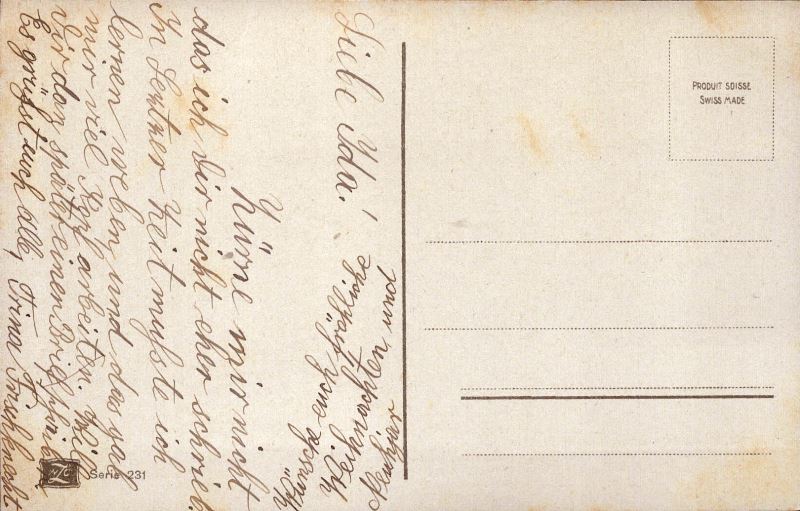 Liebe Ida!
Wünsche euch fröhliche
Weihnachten, und
Neuhjar
Zürne mir nicht
das ich dir nicht eher schrieb.
In Letzter Zeit musste ich
lernen weben, und das gab
mir viel arbeiten. Will
dir dan später einer Brief
Es grüsst euch alle, Trina Frischknecht
PRODUIT SUISSE
SWISS MADE
Serie 231